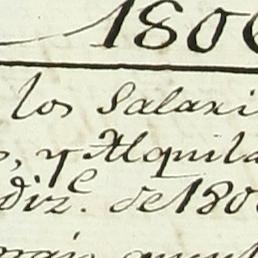 1806
los Salari
s, y Alquila
diz.e de 180